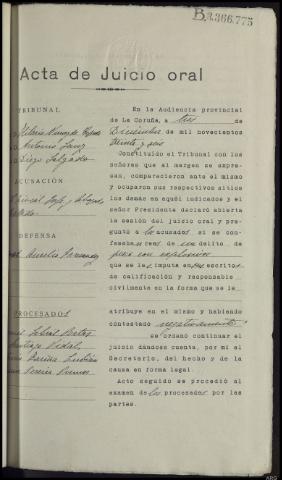 B 2.366.775
Acta de Juicio oral
TRIBUNAL
Hilario
Antonio
Diego Salgado
ACUSACIÓN
Fiscal
DEFENSA
Aurelio
PROCESADOS
Vidal
En la Audiencia provincial
de La Coruña, a tres de
Diciembre de mil novecientos
veinte y seis
Constituído el Tribunal con los
señores que al margen se expre-
san, comparecieron ante el mismo
y ocuparon sus respectivos sitios
los demás en aquél indicados y el
señor Presidente declaró abierta
la sesión del juicio oral y pre-
guntó a los acusados si se con-
fesaba n reos de un delito de
pesca con explosivos
que se les imputa en sus escritos
de calificación y responsable
civilmente en la forma que se le
atribye en el mismo y habiendo
contestado negativamente
se ordenó continuar el
juicio dándose cuenta, por mí el
Secretario, del hecho y de la
causa en forma legal.
Acto seguido se procedió al
examen de los procesados por las
partes.